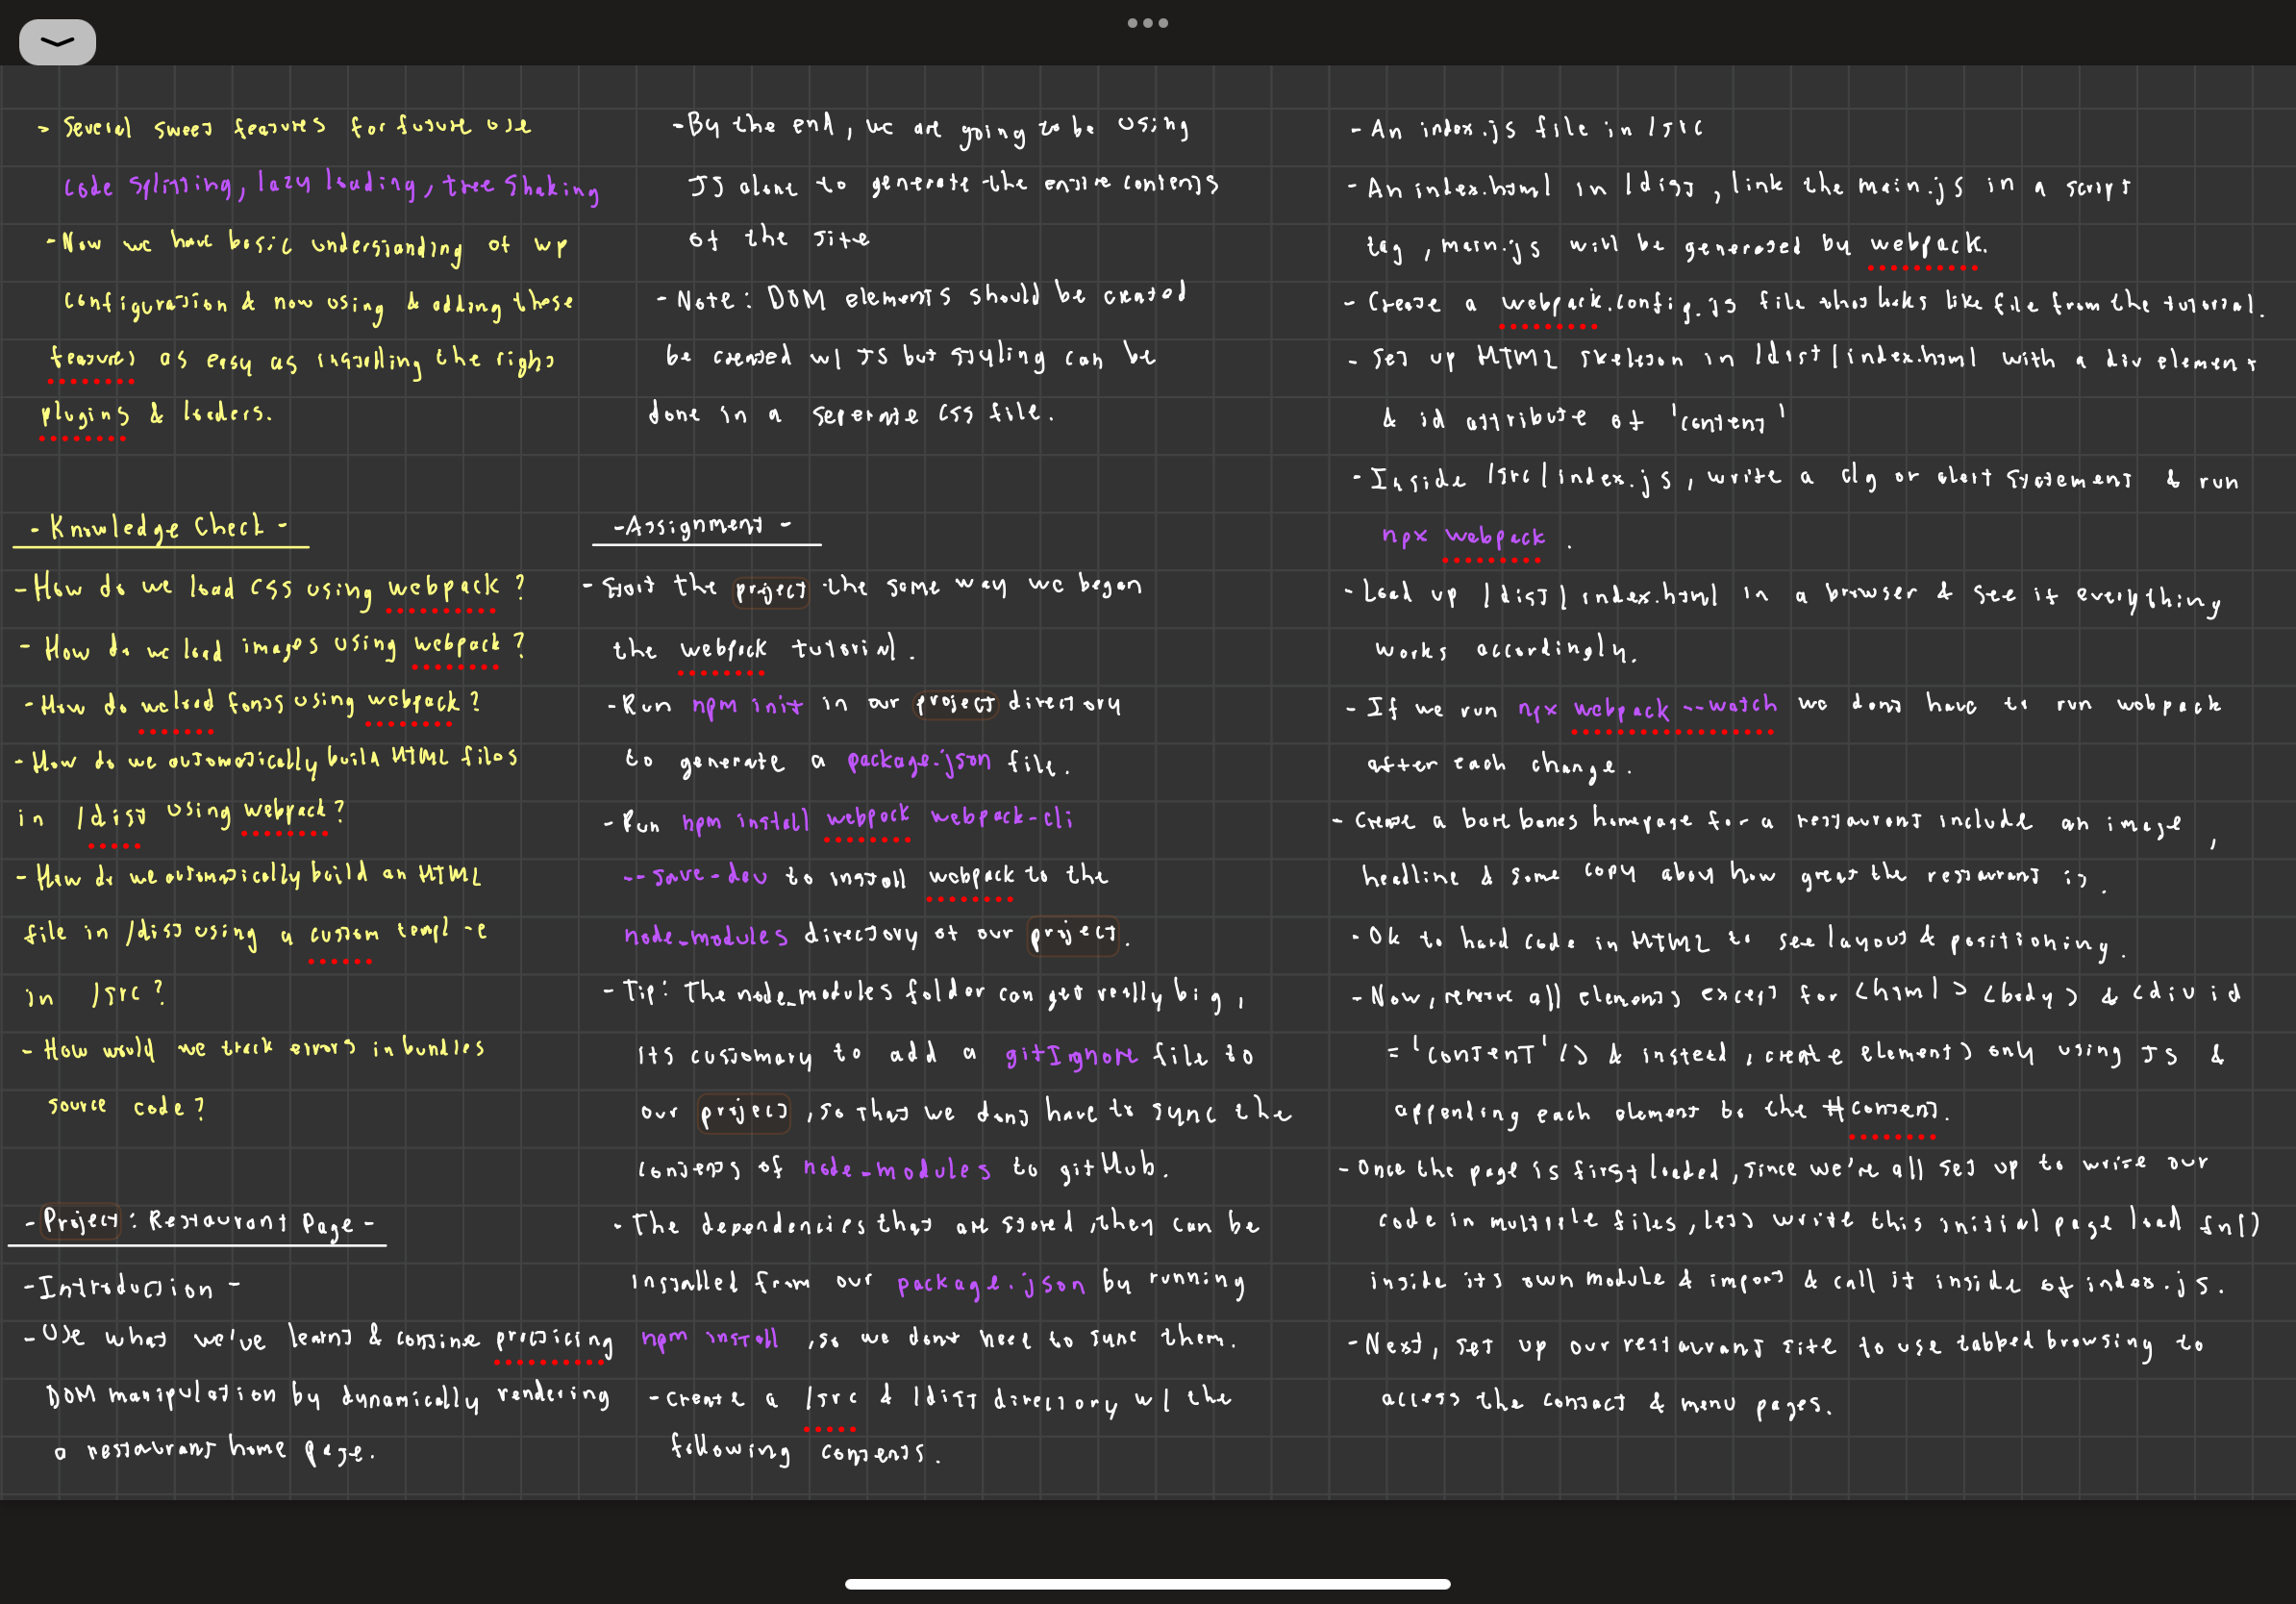 - Several sweet features for future use
code splitting, lazy loading, tree shaking
- Now we have basic understanding of wp
configuration & now using & adding these
features as easy as installing the right
plugins & loaders.
- Knowledge Check -
- How do we load css using webpack?
- How do we load images using webpack?
- How do we load fonts using webpack?
- How do we automatically build HTML files
in /dist using webpack?
- How do we automatically build an HTML
file in /dist using a custom templ-e
in /src?
- How would we track errors in bundles
source code?
- Project: Restaurant Page -
- Introduction -
- Use what we've learnt & combine practicing
DOM manipulation by dynamically rendering
a restaurant home page.
- By the end, we are going to be using
JS alone to generate the entire contents
of the site
- Note: DOM elements should be created
be created w/ JS but styling can be
done in a seperate css file.
- Assignment -
- Start the project the same way we began
the webpack tutorial.
- Run npm init in our project directory
to generate a package.json file.
- Run npm install webpack webpack-cli
--save-dev to install webpack to the
node_modules directory of our project.
- Tip: The node_modules folder can get really big,
its customary to add a gitIgnore file to
our project, so that we dont have to sync the
contents of node-modules to gitHub.
- The dependencies that are stored, they can be
installed from our package.json by running
npm install, so we dont need to sync them.
- Create a /src & /dist directory w/ the
following contents.
- An index.js file in /src
- An index.html in /dist, link the main.js in a script
tag, main.js will be generated by webpack.
- Create a webpack.config.js file that looks like file from the tutorial.
- Set up HTML skeleton in /dist/index.html with a div element
& id attribute of 'content'
- Inside /src/index.js, write a clg or alert statement & run
npx webpack.
- Load up /dist/index.html in a browser & see if everything
works accordingly.
- If we run npx webpack --watch we dont have to run webpack
after each change.
- Create a bare bones homepage for a restaurant include an image,
headline & some copy about how great the restaurant is.
- Ok to hard code in HTML to see layout & positioning.
- Now, remove all elements except for <html> <body> & <div id
= 'content'/> & instead, create elements only using JS &
appending each element to the #content.
- Once the page is first loaded, since we're all set up to write our
code in multiple files, lets write this initial page load fn()
inside its own module & import & call it inside of index.js.
- Next, set up our restaurant site to use tabbed browsing to
access the contact & menu pages.